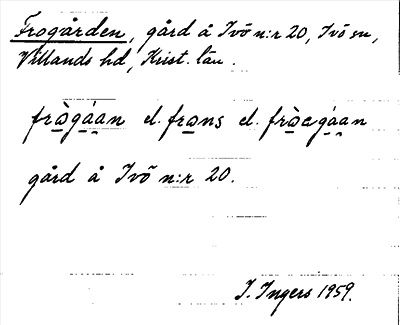 Frogården, gård å Ivö n:r 20, Ivö sn,
Villands hd, Krist. län.
frò̱gá̱a̱n el. fro̱ns el. frò̱egá̱a̱n
gård å Ivö n:r 20.
I. Ingers 1959.